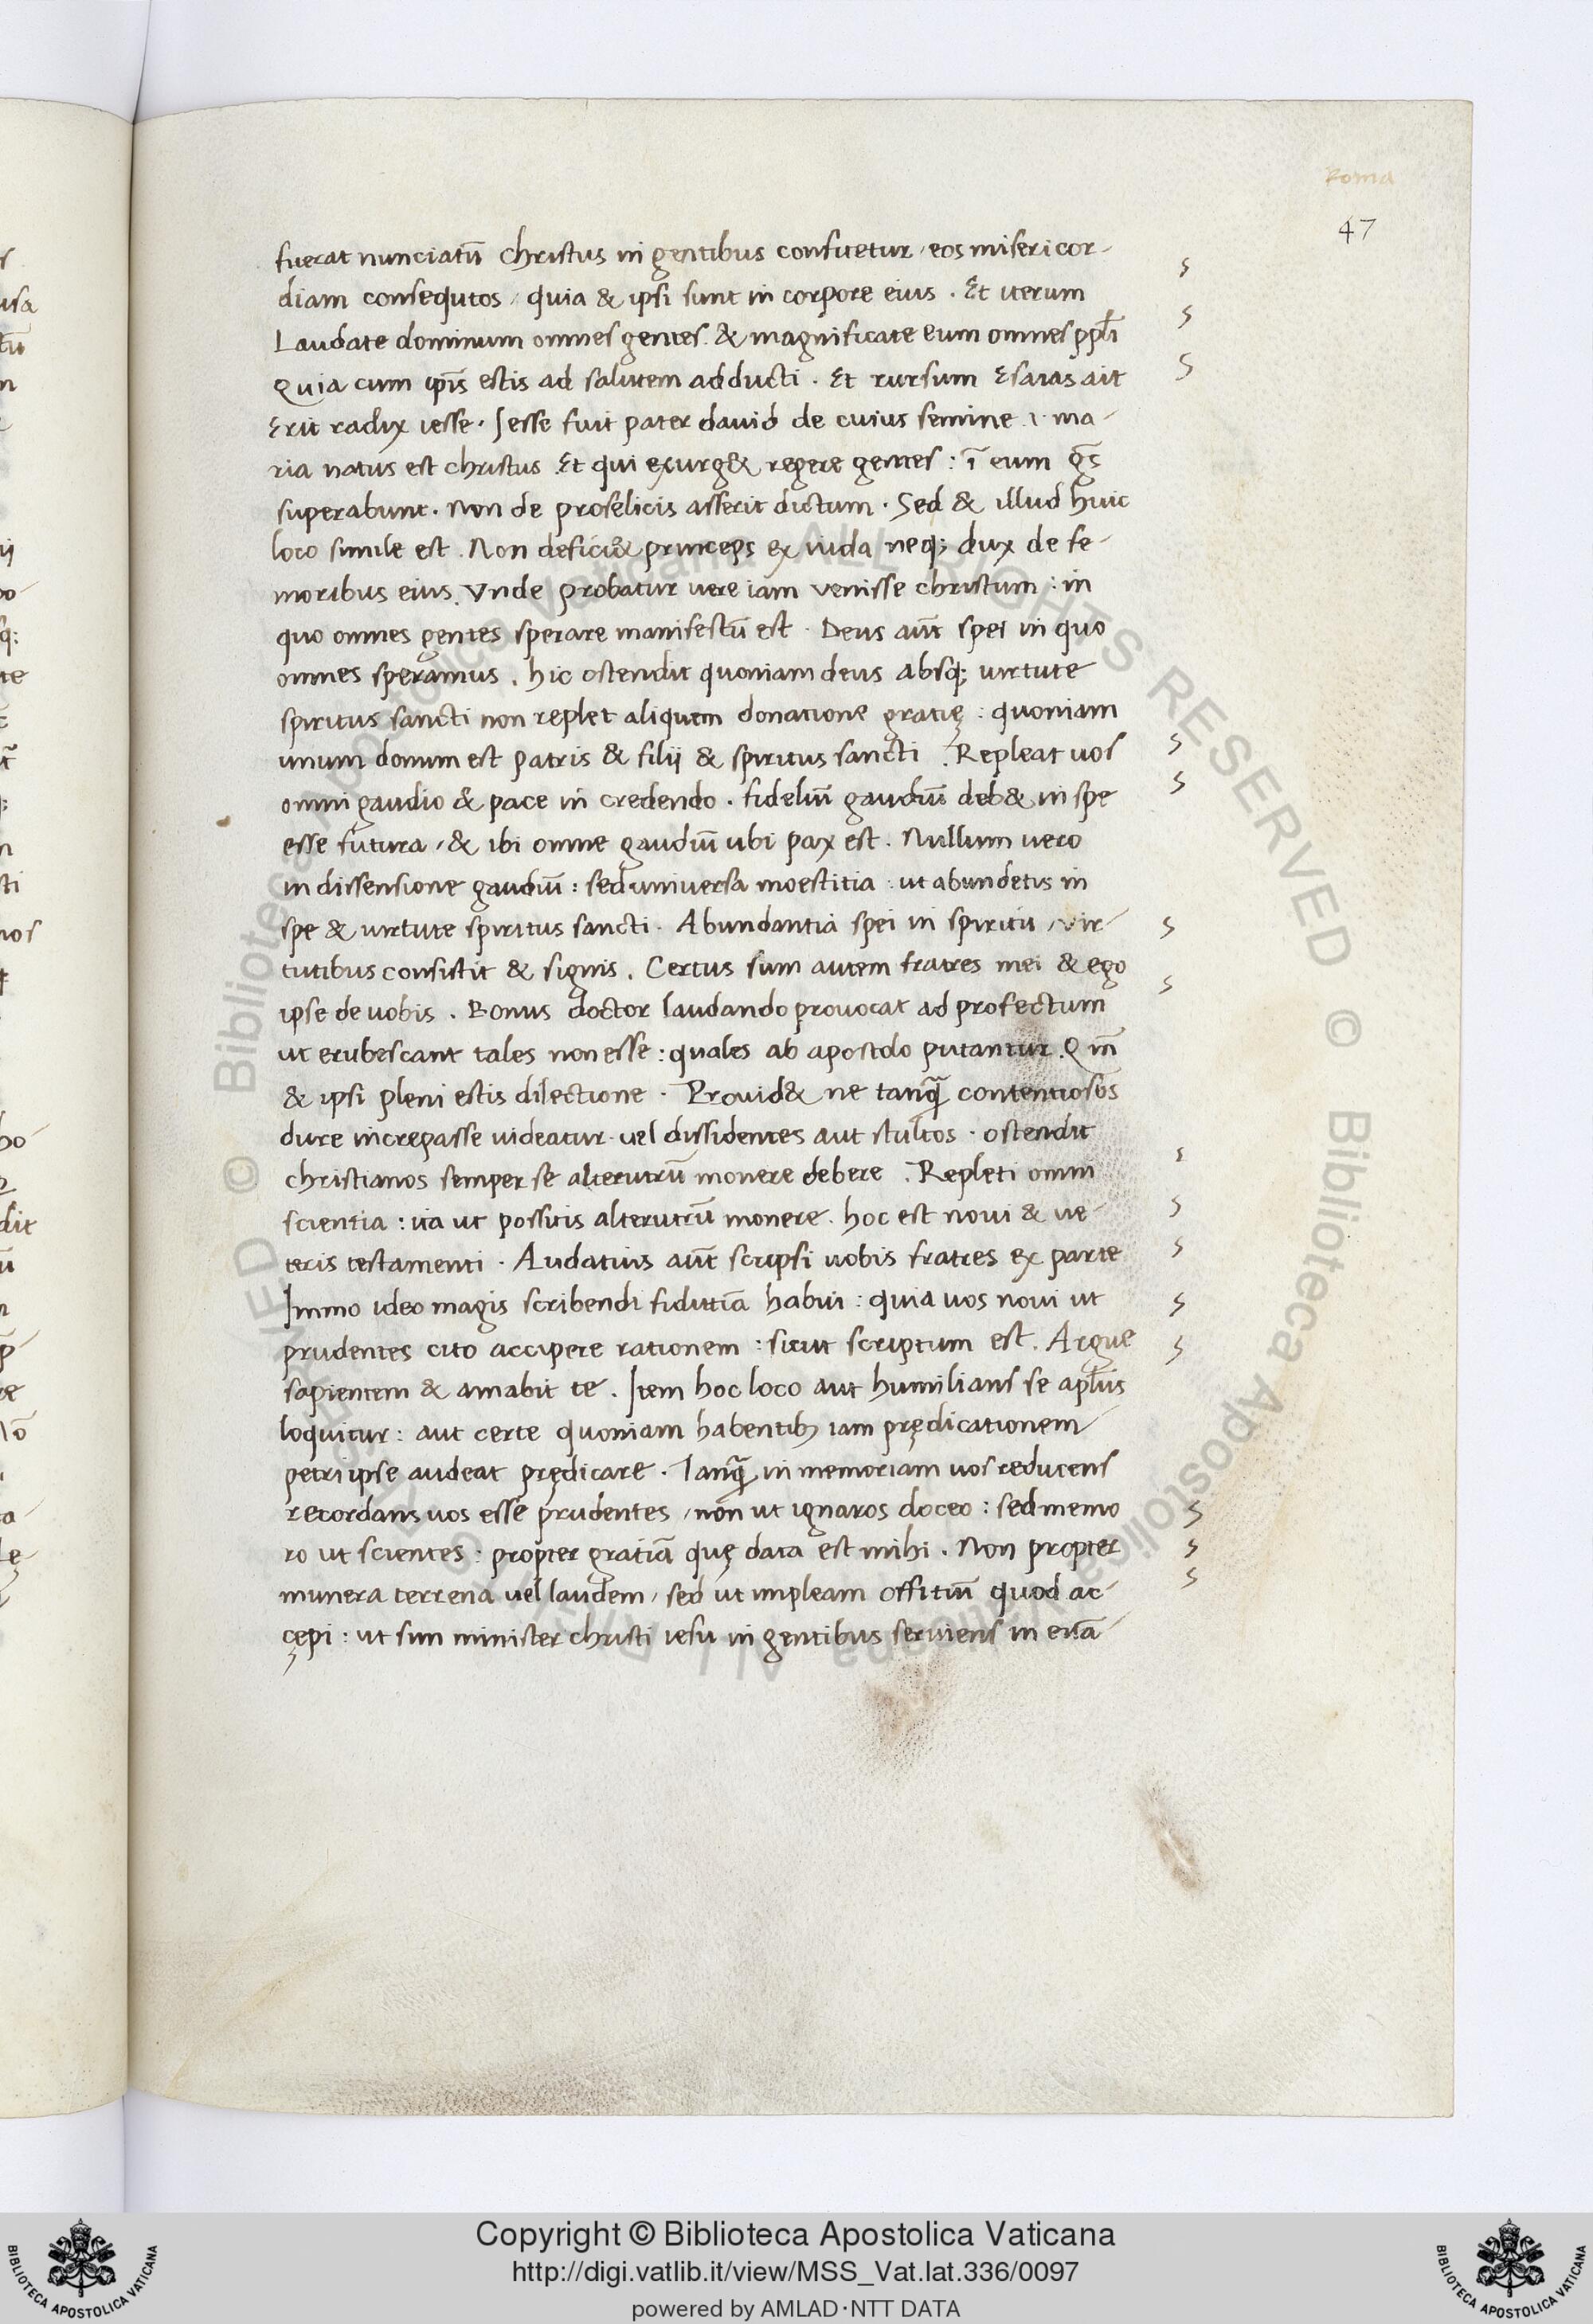 Roma
47
fuerat nunciatū christus in gentibus confitetur / eos misericor-
diam consequtos / quia & ipsi sunt in corpore eius . Et iterum
Laudate dominum omnes gentes . & magnificate eum omnes ppl̄i
Quia cum ip̄is estis ad salutem adducti . Et rursum Esaias ait
Erit radix iesse . Jesse fuit pater david de cuius semine .i. ma-
ria natus est christus . Et qui exurg& regere gentes : ī eum gē̄s
superabunt . Non de proselicis asserit dictum . Sed & illud huic
loco simile est . Non defici& princeps ex iuda neq; dux de fe-
moribus eius . Vnde probatur uere iam venisse christum : in
quo omnes gentes sperare manifestū est . Deus aūt spei in quo
omnes speramus . hic ostendit quoniam deus absq; uirtute
spiritus sancti non replet aliquem donatione gratię : quoniam
unum donum est patris & filij & spiritus sancti . Repleat uos
omni gaudio & pace in credendo . fideliū gaudiū deb& in spe
esse futura / & ibi omne gaudiū ubi pax est . Nullum uero
in dissensione gaudiū : sed universa moestitia : ut abundetis in
spe & uirtute spiritus sancti . Abundantia spei in spiritu / vir-
tutibus consistit & signis . Certus sum autem fratres mei & ego
ipse de uobis . Bonus doctor laudando provocat ad profectum
ut erubescant tales non esse : quales ab apostolo putantur . Qm̄
& ipsi pleni estis dilectione . Provid& ne tanq̄ contentiosos
dure increpasse uideatur . uel dissidentes aut stultos . ostendit
christianos semper se alterutrū monere debere . Repleti omni
scientia : ita ut possitis alterutrū monere . hoc est noui & ue-
teris testamenti . Audatius aūt scripsi uobis fratres ex parte
Immo ideo magis scribendi fidutiā habui : quia uos noui ut
prudentes cito accipere rationem : sicut scriptum est . Argue
sapientem & amabit te . Item hoc loco aut humilians se apl̄us
loquitur : aut certe quoniam habentib; iam prędicationem
petri ipse audeat prędicare . Tanq̄ in memoriam uos reducens
recordans uos esse prudentes / non ut ignaros doceo : sed memo
ro ut scientes : propter gratiā quę data est mihi . Non propter
munera terrena uel laudem / sed ut impleam offitiū quod ac-
cępi : ut sim minister christi iesu in gentibus seruiens in euā-
Copyright © Biblioteca Apostolica Vaticana
http://digi.vatlib.it/view/MSS_Vat.lat.336/0097
powered by AMLAD·NTT DATA